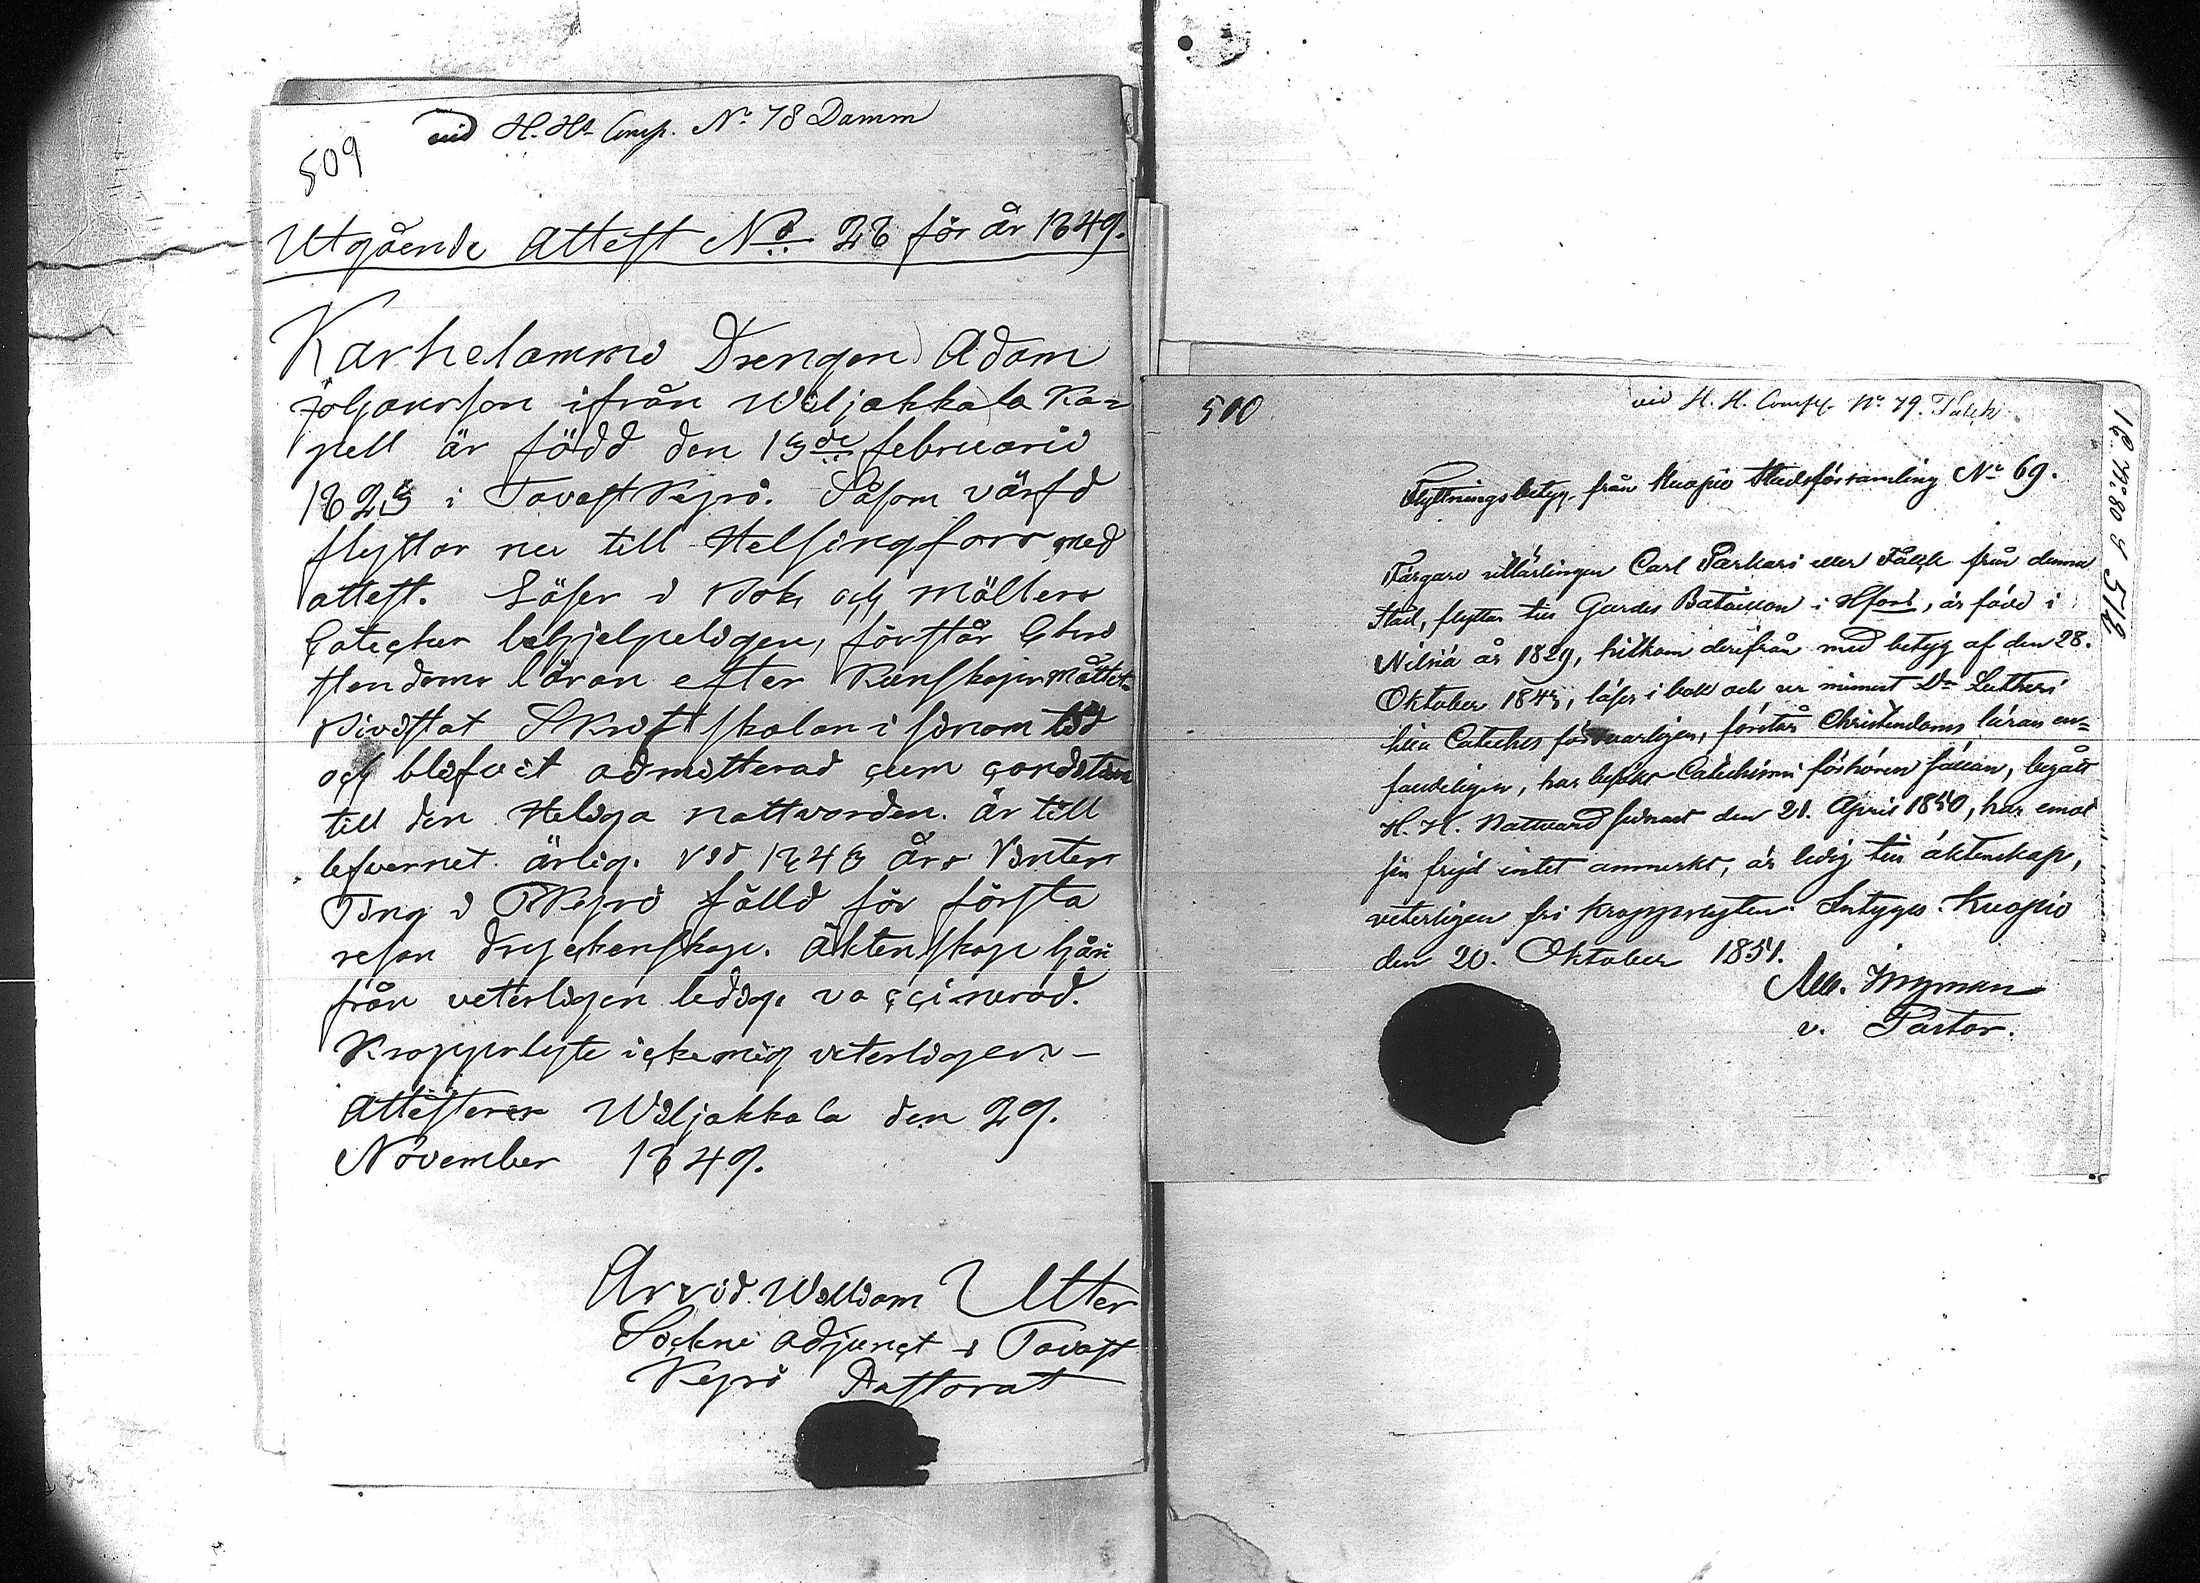 509
vid H. Hs Comp. No 78 Damm
Utgående Attest No 28 för år 1849.
Karhelammi Drengen Adam
Johansson ifrån Wiljakkala Ka-
pell är född den 13de februarii
1823 i Tavast Kyrö. Såsom värfd
flyttar nu till Helsingfors med
attest. Läser i Bok och Möllers
Catecher behjelpeligen, förstår Chri
stendoms läran efter Kunskaps måttet
Bivistat Skriftskolan i sinom tid
och blifvit admitterad cum conditione
till den Heliga nattvarden. är till
lefvernet ärlig. Vid 1848 års Vinter
Ting i TKyrö fälld för första
resan dryckenskap. Äktenskap här
ifrån veterligen ledig, vaccinerad.
Kroppslyte icke mig veterligen -
Attesterar Wiljakkala den 29.
November 1849.
Arvid William Utter
Sockne adjunct i Tavast
Kyrö Pastorat
510
vid H. H. Comp. No 79. Falck
Flyttningsbetyg från Kuopio Stadsförsamling No 69.
Färgare utlärlingen Carl Parkari eller Falck från denna
stad, flyttar till Gardes Bataillon i Hfors, är född i
Nilsiä år 1829, hitkom derifrån med betyg af den 28.
Oktober 1843, läser i bok och ur minnet Dr Lutheri
lilla Cateches försvarligen, förstår Christendoms läran en-
faldeligen, har besökt Catechismi förhören sällan, begått
H. H. Nattvard sednast den 21. April 1850, har emot
sin frejd intet anmerkt, är ledig till äktenskap,
veterligen fri kroppslyten. Intygas. Kuopio
den 20. Oktober 1851.
v. Pastor.
No 80 512